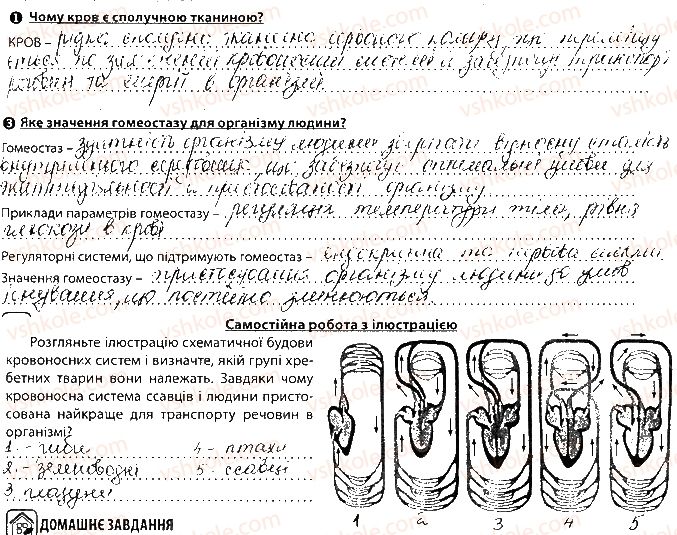 ❶ Чому кров є сполучною тканиною?
КРОВ – рідка сполучна тканина червоного кольору, що переміщу
ється по замкненій кровоносній системі й забезпечує транспорт
речовин та енергії в організмі
❸ Яке значення гомеостазу для організму людини?
Гомеостаз – здатність організму людини зберігати відносну сталість
внутрішнього середовища, що забезпечує оптимальні умови для
життєдіяльності й пристосованості організму
Приклади параметрів гомеостазу – регуляція температури тіла, рівня
глюкози в крові
Регуляторні системи, що підтримують гомеостаз – ендокринна та нервова
Значення гомеостазу – пристосування організму людини до умов
існування, що постійно змінюються
Самостійна робота з ілюстрацією
Розгляньте ілюстрацію схематичної будови
кровоносних систем і визначте, якій групі хре-
бетних тварин вони належать. Завдяки чому
кровоносна система ссавців і людини присто-
сована найкраще для транспорту речовин в
організмі?
1. - риби 4 - птахи
2. - земноводні 5 ссавці
3 плазуни
1 2 3 4 5
ДОМАШНЄ ЗАВДАННЯ
vshkole.com